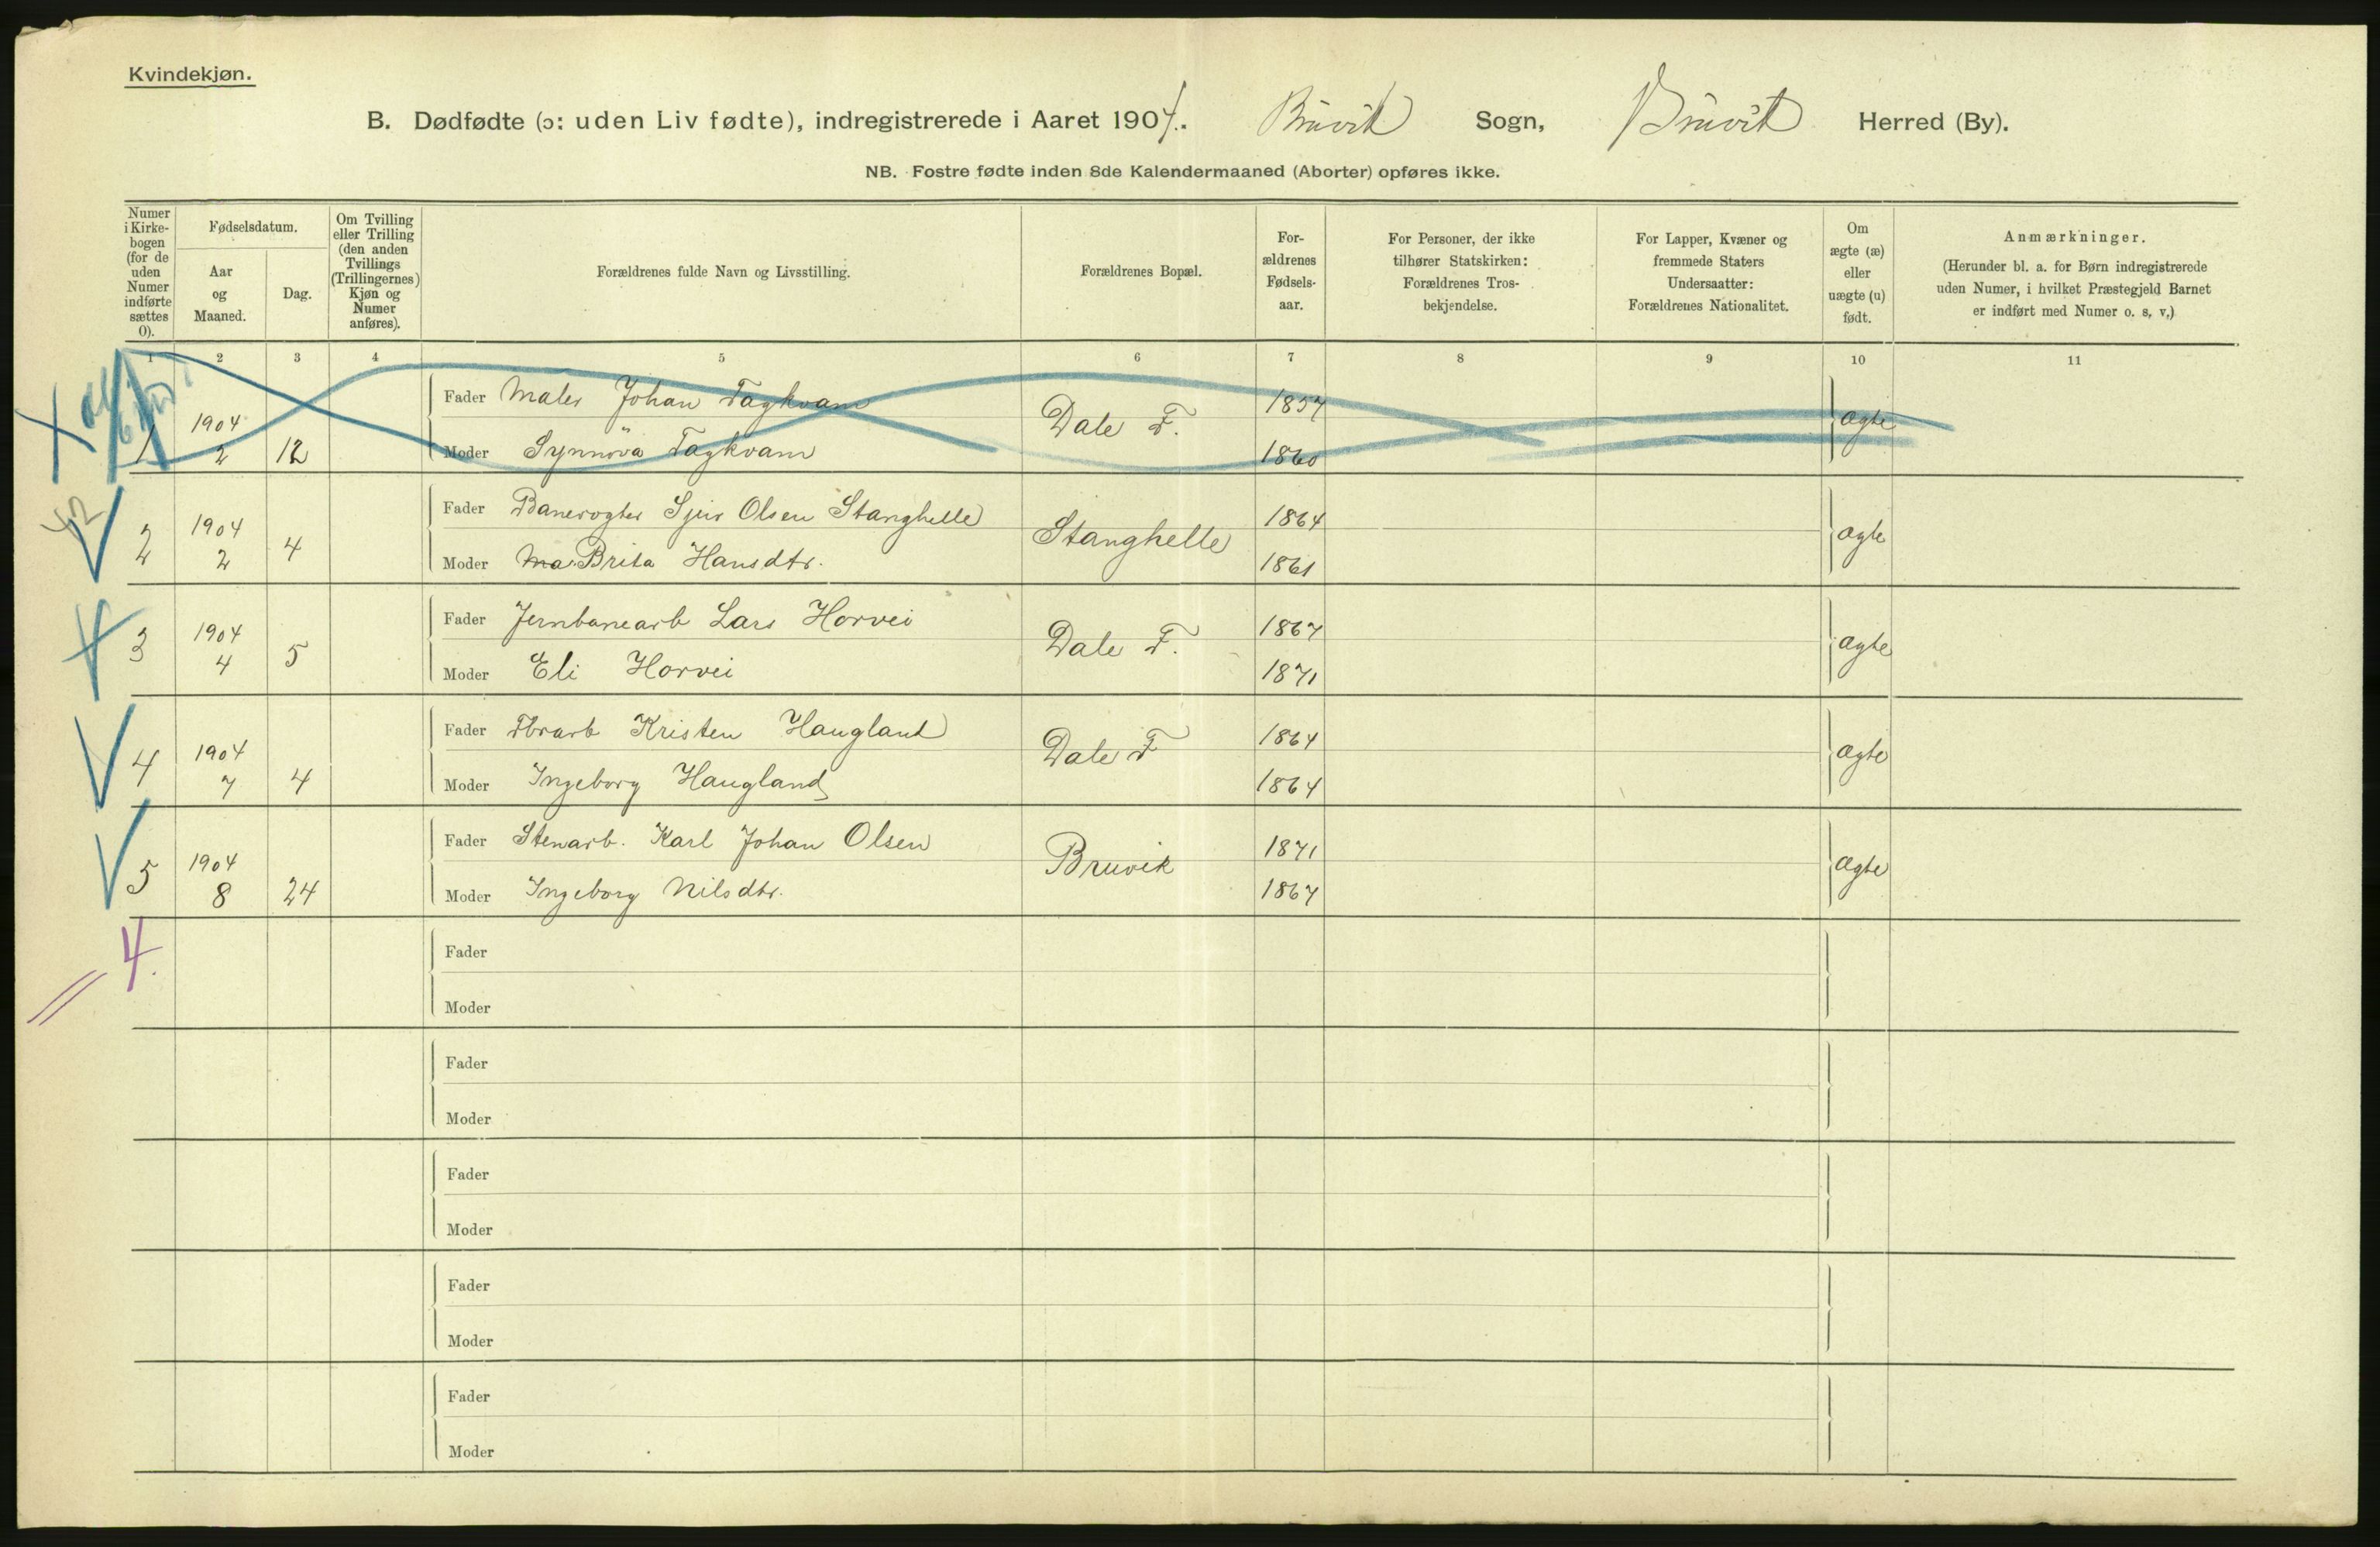 Kvindekjøn.
B. Dødfødte (ɔ: uden Liv fødte), indregistrerede i Aaret 1904. Bruvik Sogn, Bruvik Herred (By).
NB. Fostre fødte inden 8de Kalendermaaned (Aborter) opføres ikke.
Numer i Kirke-bogen (for de uden Numer indførte sættes 0).
Fødselsdatum.
Aar og Maaned.
Dag.
Om Tvilling eller Trilling (den anden Tvillings (Trillingernes) Kjøn og Numer anføres).
Forældrenes fulde Navn og Livsstilling.
Forældrenes Bopæl.
For-ældrenes Fødsels-aar.
For Personer, der ikke tilhører Statskirken: Forældrenes Tros-bekjendelse.
For Lapper, Kvæner og fremmede Staters Undersaatter: Forældrenes Nationalitet.
Om ægte (æ) eller uægte (u) født.
Anmærkninger.
(Herunder bl. a. for Børn indregistrerede uden Numer, i hvilket Præstegjeld Barnet er indført med Numer o. s. v.)
1 2 3 4 5 6 7 8 9 10 11
1 1904 2 12 Fader Maler Johan Fagkvam Dale F. 1857 ægte
Moder Synnöva Fagkvam 1860
2 1904 2 4 Fader Banevogter Sjur Olsen Stanghelle Stanghelle 1864 ægte
Moder Ma Brita Hansdtr. 1861
3 1904 4 5 Fader Jernbanearb Lars Horvei Dale F. 1867 ægte
Moder Eli Horvei 1871
4 1904 7 4 Fader Fbrarb Kristen Haugland Dale F 1864 ægte
Moder Ingeborg Haugland 1864
5 1904 8 24 Fader Stenarb. Karl Johan Olsen Bruvik 1871 ægte
Moder Ingeborg Nilsdtr. 1867
4.
Fader
Moder
Fader
Moder
Fader
Moder
Fader
Moder
Fader
Moder